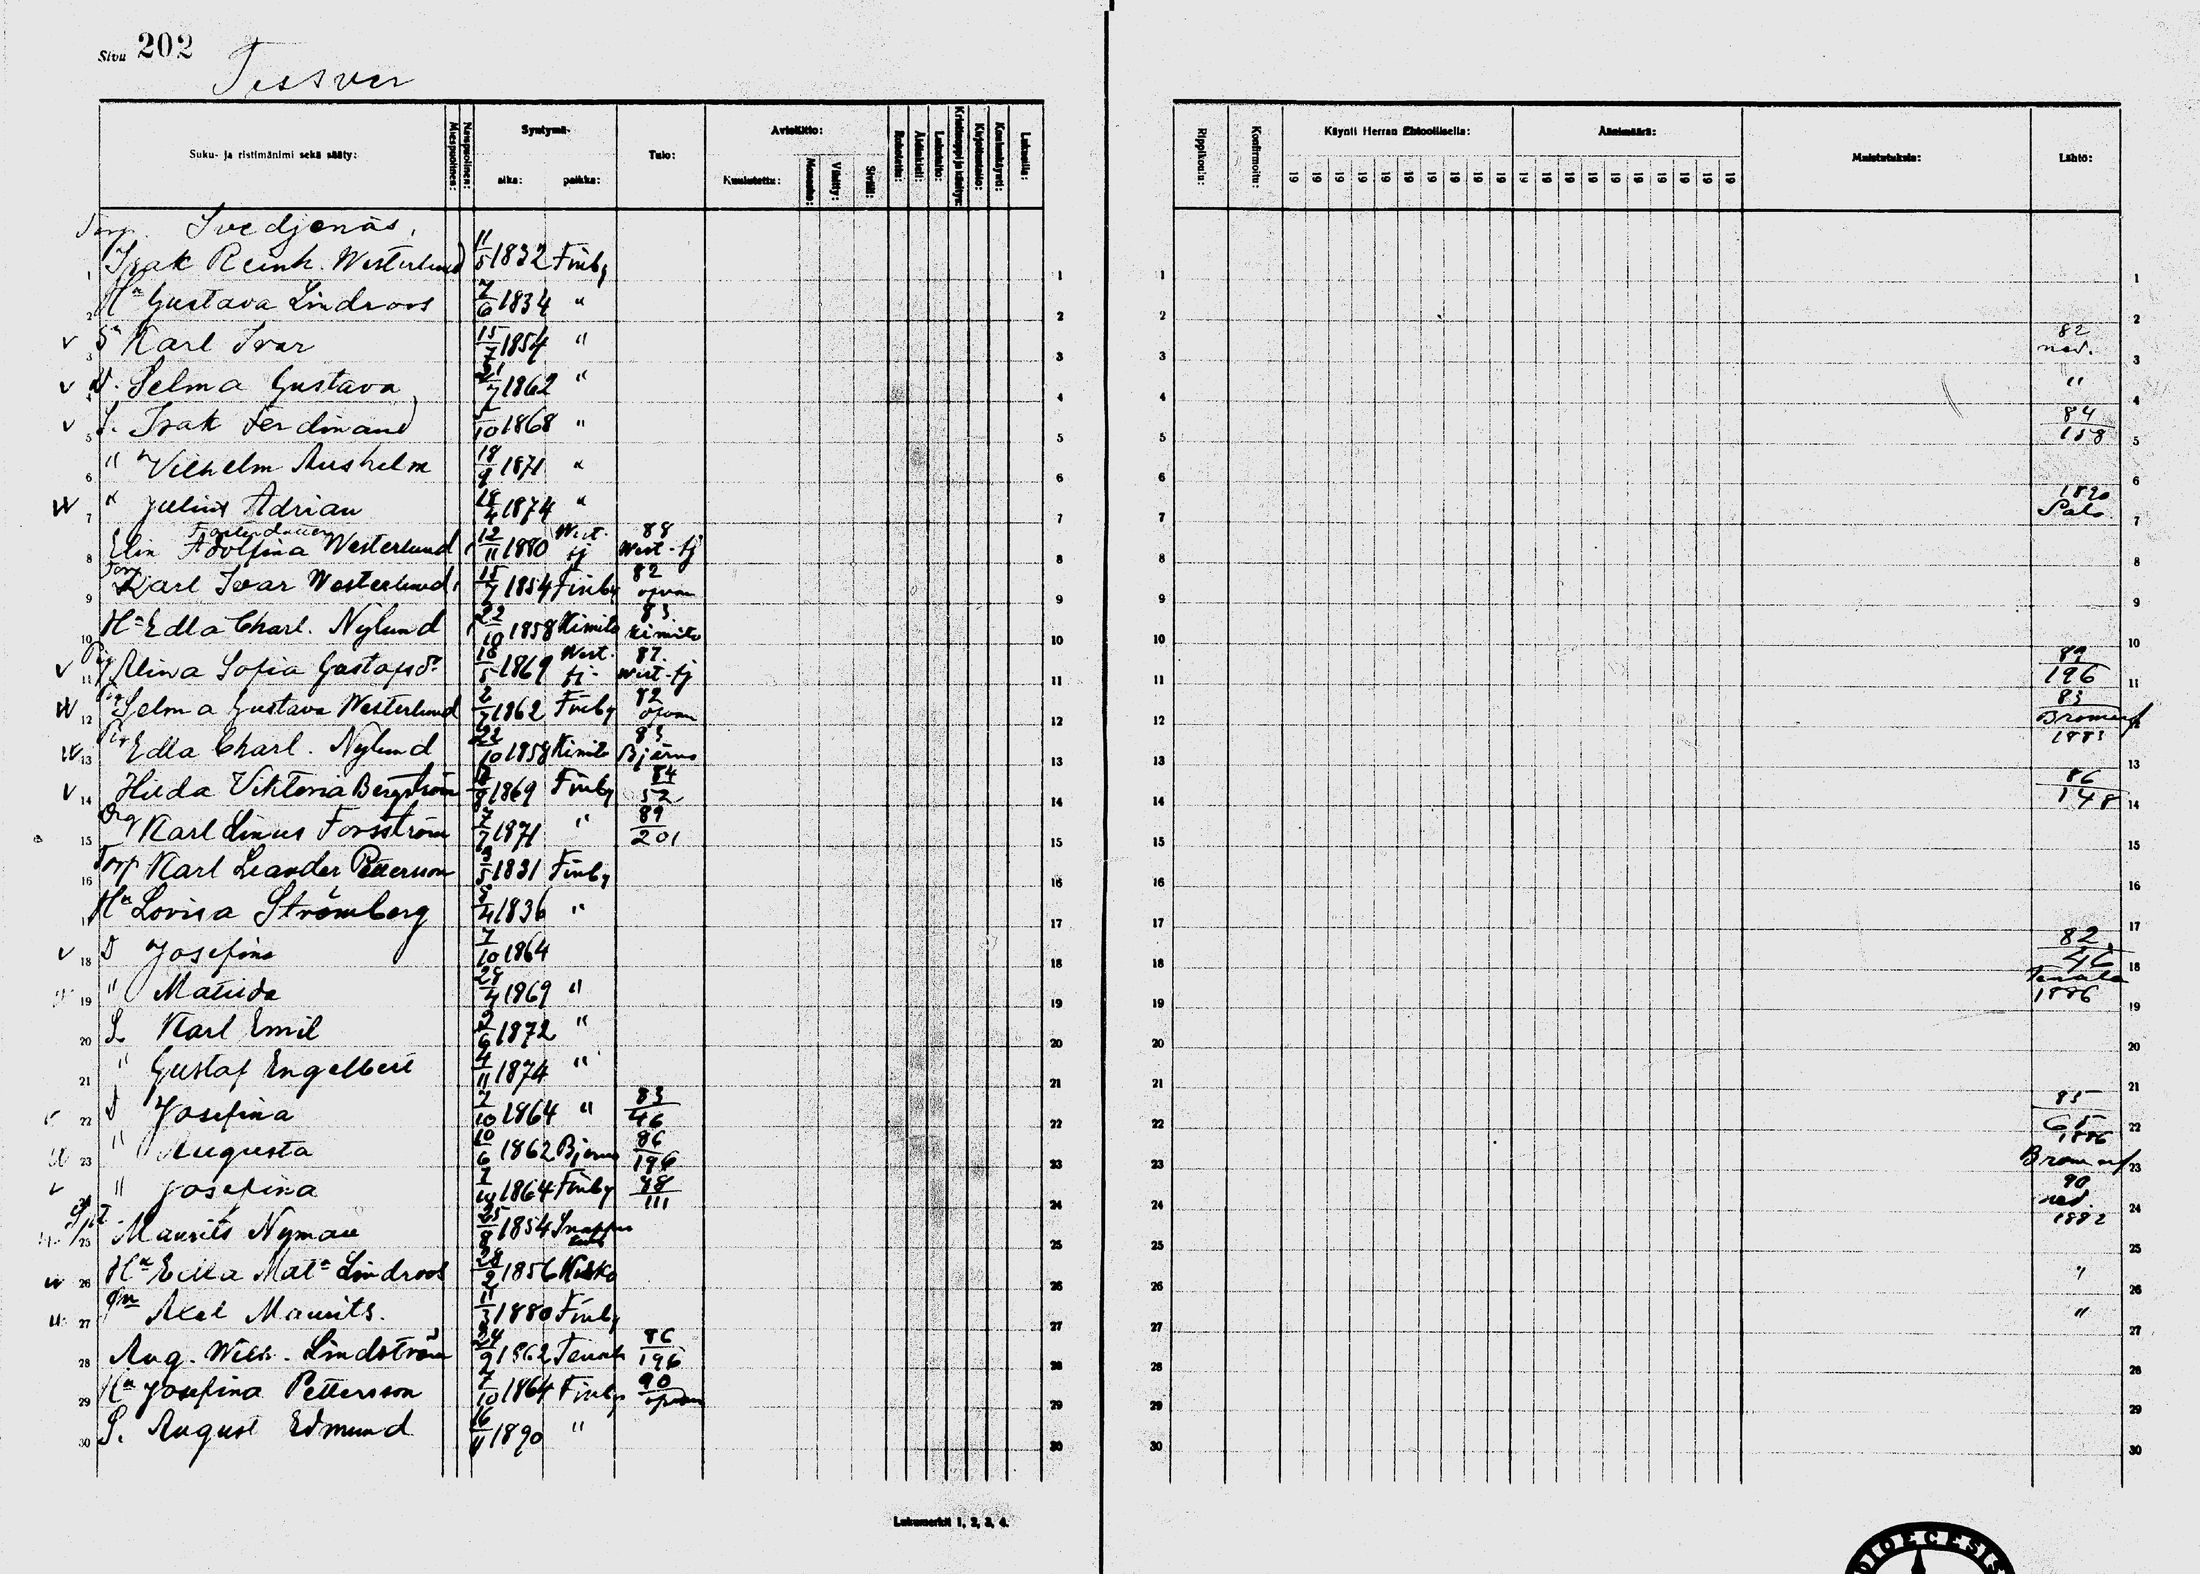 Sivu 202
Tessvär
Suku- ja ristimänimi sekä sääty: Miespuolinen: Naispuolinen: Syntymä- aika: paikka: Tulo: Kuulutettu: Avioliitto: Monesko: Vihitty: Siviili: Rokotettu: Äidinkieli: Lukutaito: Kristinoppi ja käsitys: Kirjoitustaito: Koulunkäynti: Lukusija: Rippikoulu: Konfirmoitu: Käynti Herran Ehtoollisella: 19 19 19 19 19 19 19 19 19 19 Äänimäärä: 19 19 19 19 19 19 19 19 19 19 Muistutuksia: Lähtö:
Torp. Svedjenäs,
1 Isak Reinh. Westerlund 11/5 1832 Finby 1 1 1
2 Hu Gustava Lindroos 7/6 1834 " 2 2 2
v 3 Sn Karl Ivar 15/7 1854 " 3 3 82 ned. 3
v 4 D. Selma Gustava 1862 " 4 4 " 4
v 5 S. Isak Ferdinand /10 1868 " 5 5 84/158 5
6 " Vilhelm Anshelm 18/9 1871 " 6 6 6
7 " Julius Adrian 18/4 1874 " 7 7 1890 Salo 7
8 Elin Adolfina Westerlund 12/11 1880 West. fj 88 West-fj 8 8 8
9 Torp Karl Ivar Westerlund 15/7 1854 Finby 82 ofvan 9 9 9
10 Hu Edla Charl. Nylund 22/10 1858 Kimito 83 Kimito 10 10 10
v 11 Pig Alina Sofia Gustafsdr 18/5 1869 West. fj. 87 West-fj 11 11 89/196 11
12 Pig Selma Gustava Westerlund 2/7 1862 Finby 82 ofvan 12 12 83 Bromarf 12
13 Pig Edla Charl. Nylund 22/10 1858 Kimito 83 Bjärno 13 13 1883 13
v 14 Hilda Viktoria Bergström /8 1869 Finby 84/52 14 14 86/148 14
15 Drg Karl Linus Forsström 7/7 1871 " 89/201 15 15 15
16 Torp Karl Leander Petterson /5 1831 Finby 16 16 16
Hu Lovisa Strömberg /4 1836 " 17 17 17
v 18 D Josefina 7/10 1864 18 18 82/46 18
19 " Matilda 29/4 1869 " 19 19 Tenala 1886 19
20 S. Karl Emil 2/6 1872 " 20 20 20
21 " Gustaf Engelbert 4/11 1874 " 21 21 21
v 22 D Josefina 7/10 1864 " 83/46 22 22 85/65 22
23 " Augusta 10/6 1862 Bjerno 86/196 23 23 1886 Bromarf 23
v " Josefina 7/10 1864 Finby 88/111 24 24 90 ned. 24
25 Maurits Nyman 25/8 1854 25 25 1882 25
26 Hu Edla Mata Lindroos 28/2 1856 Kisko 26 26 " 26
27 Axel Maurits. 1880 Finby 27 27 " 27
28 Aug. Wilh. Lindström 24/9 1862 Tenala 86/196 28 28 28
29 Hu Josefina Pettersson 7/10 1864 Finby 90 ofvan 29 29 29
30 S. August Edmund 16/11 1890 " 30 30 30
Lukumerkit 1, 2, 3, 4.
DIOECESIS